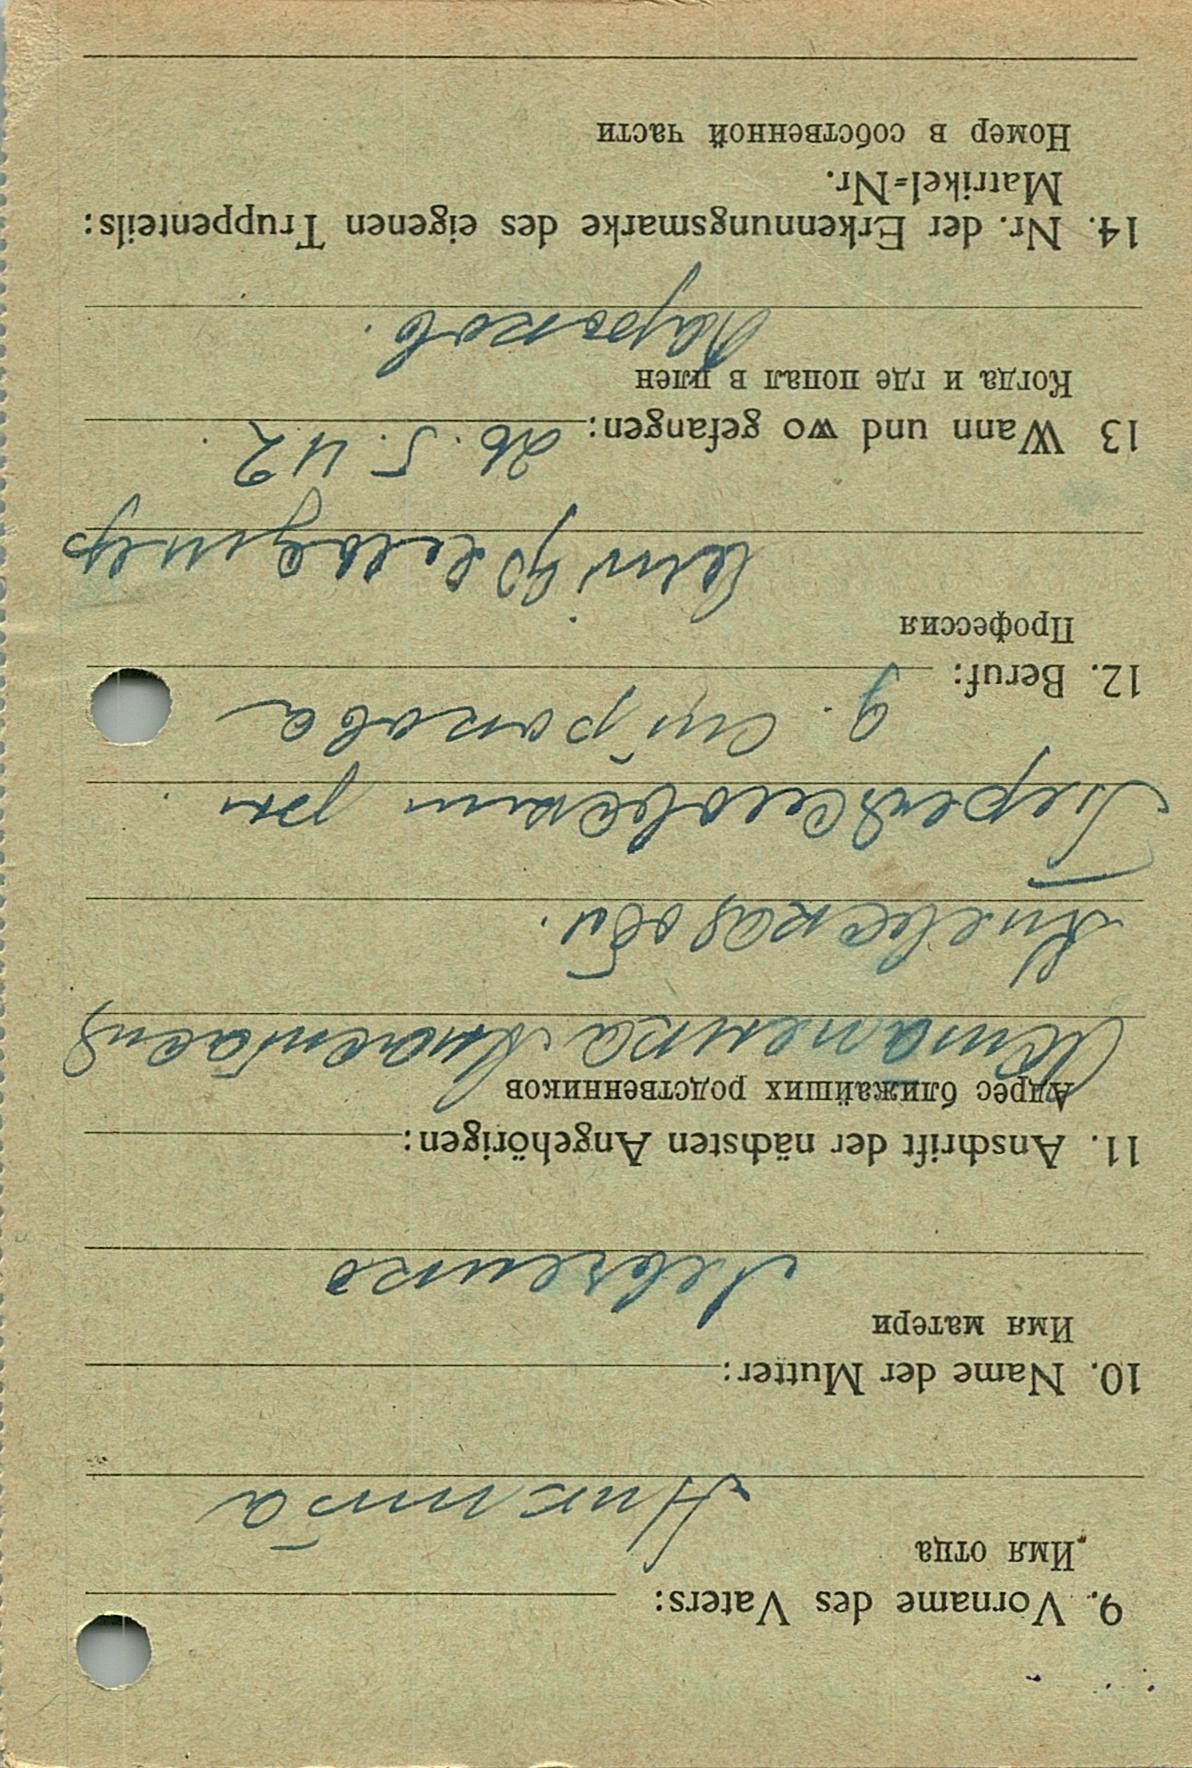 9. Vorname des Vaters:
Имя отца
Никита
10. Name der Mutter:
Имя матери
Левченко
11. Anschrift der nächsten Angehörigen:
Адрес ближайших родственников
Анастасия
Киевская обл.
д.
12. Beruf:
Профессия
13 Wann und wo gefangen: 26.5.42.
Когда и где попал в плен
Харьков.
14. Nr. der Erkennungsmarke des eigenen Truppenteils:
Matrikel=Nr.
Номер в собственной части